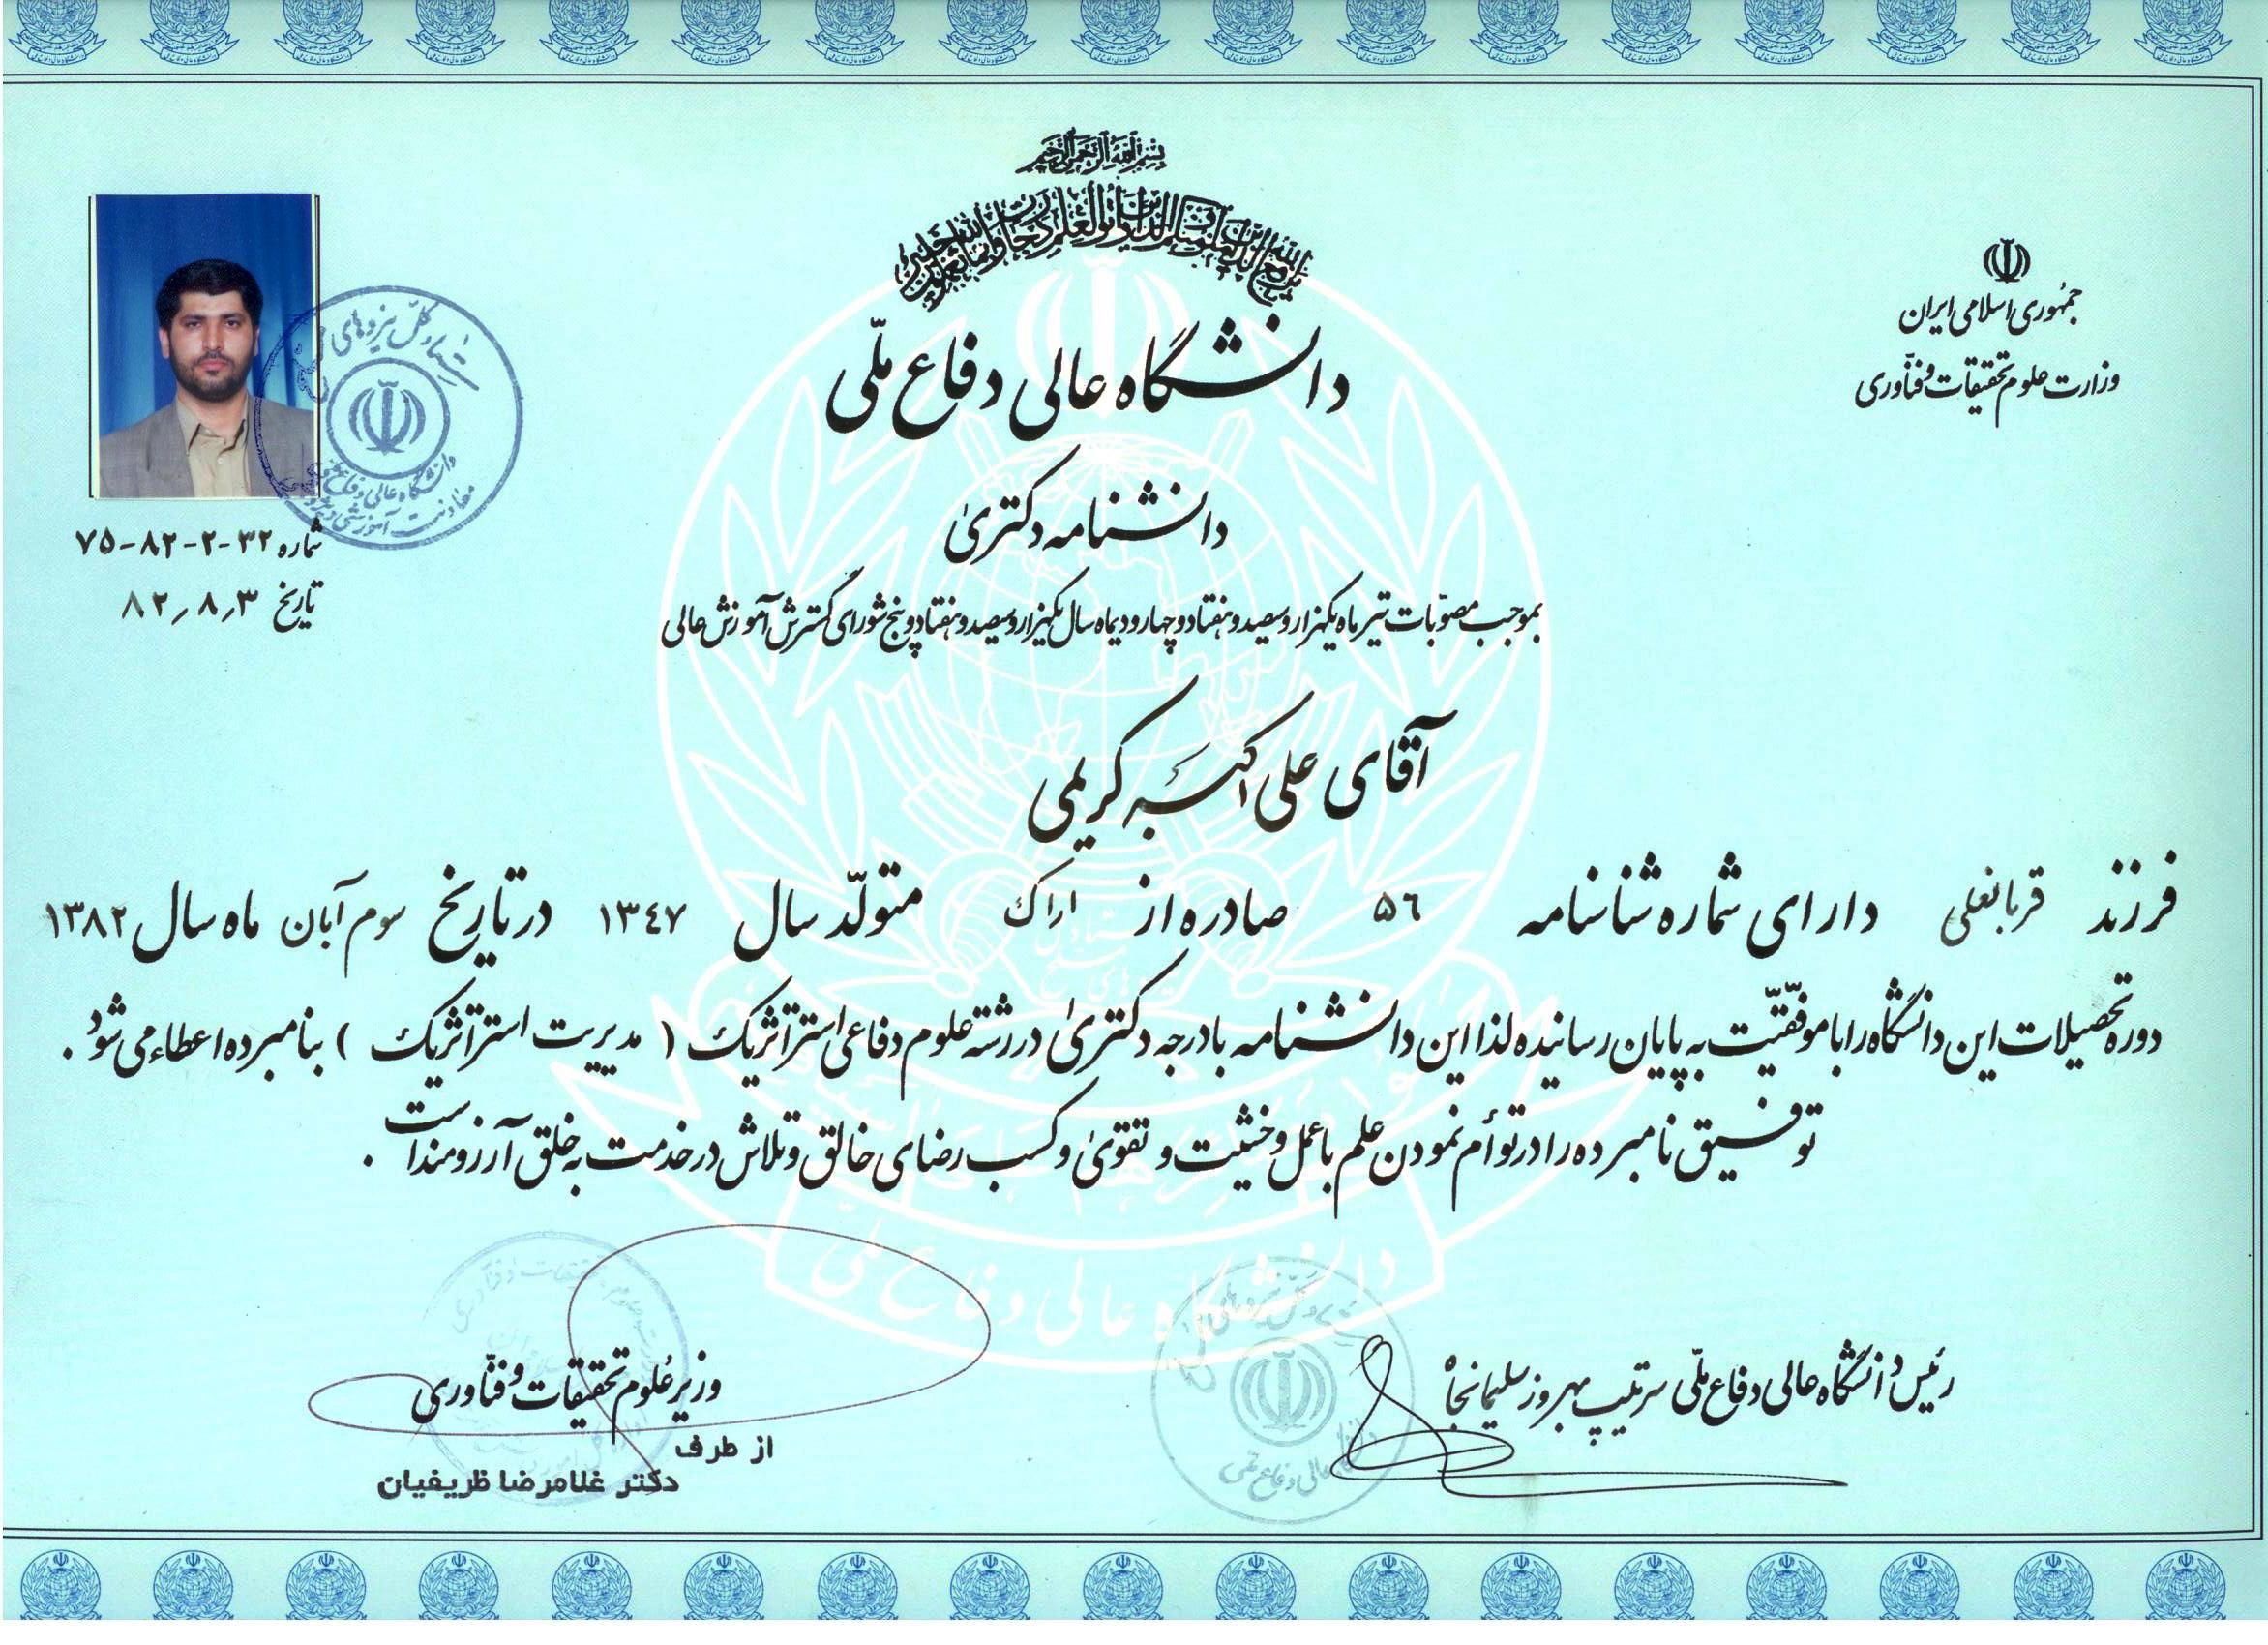 بسم الله الرحمن الرحیم
یرفع الله الذین آمنوا منکم والذین اوتوا العلم درجات والله بما تعملون خبیر
جمهوری اسلامی ایران
وزارت علوم تحقیقات و فنّاوری
دانشگاه عالی دفاع ملّی
دانشنامه دکتریٰ
شماره ۳۲-۲-۸۲-۷۵
تاریخ ۸۲٫۸٫۳
بموجب مصوّبات تیر ماه یکهزار و سیصد و هفتاد و چهار و دیماه سال یکهزار و سیصد و هفتاد و پنج شورای گسترش آموزش عالی
آقای علی اکبر کریمی
فرزند قربانعلی دارای شماره شناسنامه ۵۶ صادره از اراک متولّد سال ۱۳۴۷ در تاریخ سوم آبان ماه سال ۱۳۸۲
دوره تحصیلات این دانشگاه را با موفّقیّت به پایان رسانیده لذا این دانشنامه با درجه دکتریٰ در رشته علوم دفاعی استراتژیک ( مدیریت استراتژیک ) بنامبرده اعطاء می شود .
توفیق نامبرده را در توأم نمودن علم با عمل و خشیت و تقویٰ و کسب رضای خالق و تلاش در خدمت به خلق آرزومند است .
رئیس دانشگاه عالی دفاع ملّی سرتیپ بهروز سلیمانجاه
وزیر علوم تحقیقات و فنّاوری
از طرف
دکتر غلامرضا ظریفیان
دانشگاه عالی دفاع ملی